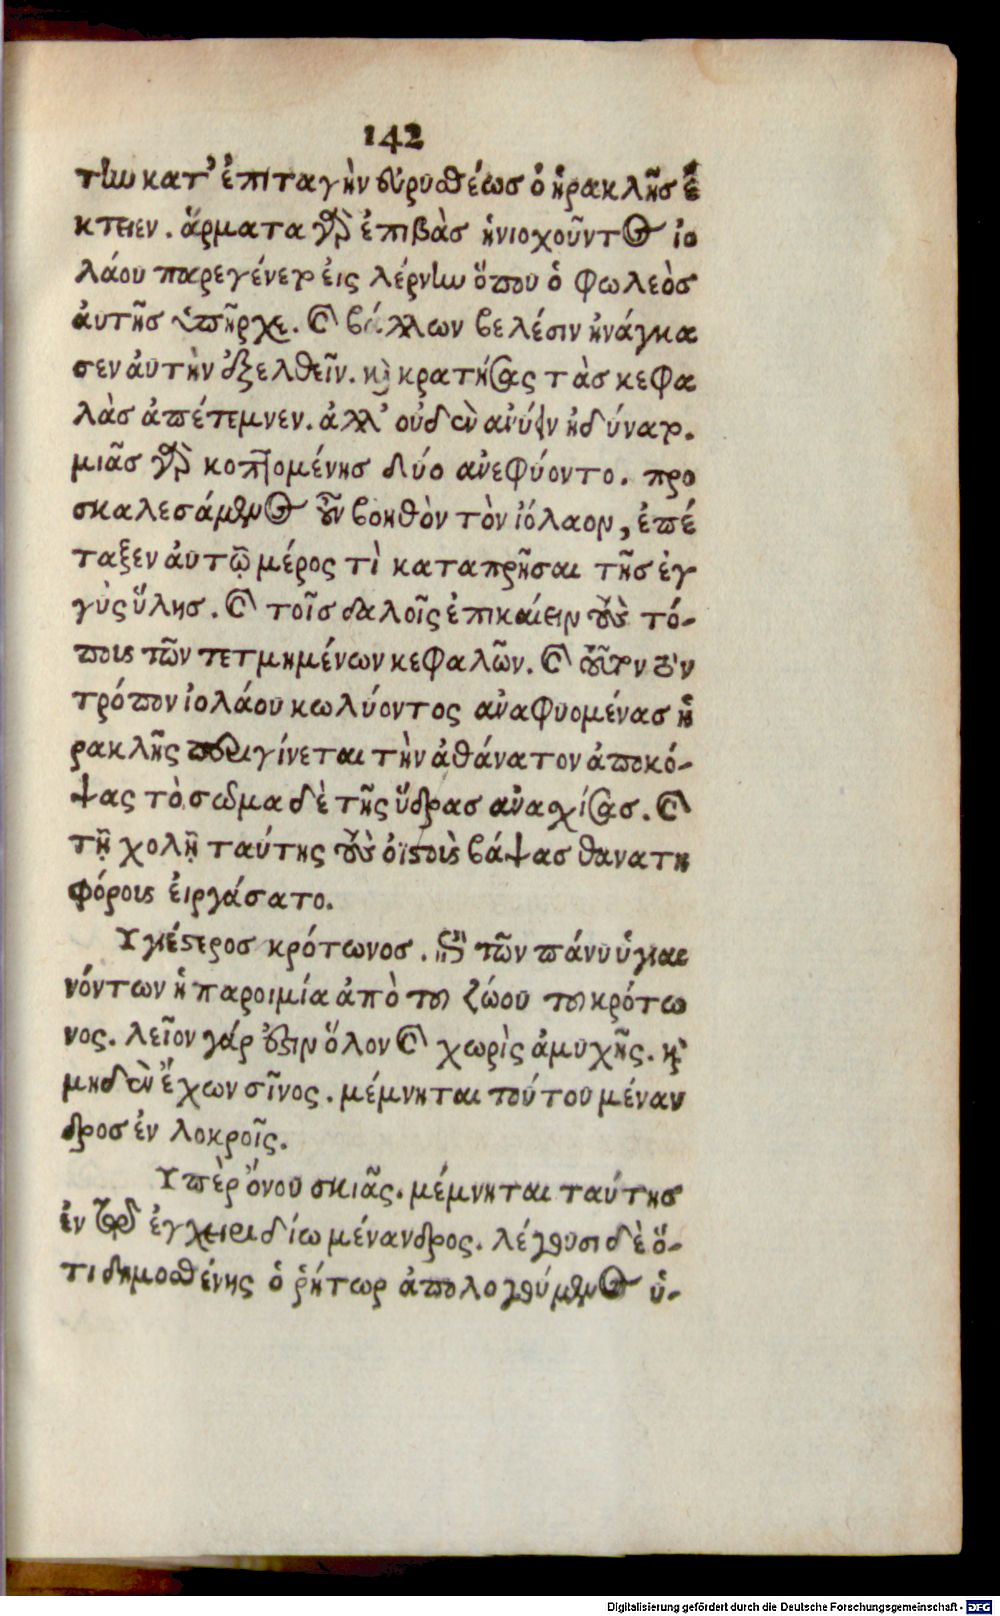 142
τὴν κατ' ἐπιταγὴν εὐρυσθέωσ ὁ ἡρακλῆσ ἔ
κτεινεν. ἅρματα γὰρ ἐπιβὰσ ἡνιοχοῦντος ἰο
λάου παρεγένετο εἰς λέρνην ὅπου ὁ φωλεὸσ
ἀυτῆσ ὑπῆρχε. καὶ βάλλων βελέσιν ἠνάγκα
σεν ἀυτὴν ἐξελθεῖν. καὶ κρατήσας τὰσ κεφα
λὰσ ἀπέτεμνεν. ἀλλ' οὐδὲν ἀνύειν ἠδύνατο.
μιᾶσ γὰρ κοπτομένησ δύο ἀνεφύοντο. προ
σκαλεσάμενος οὖν βοηθὸν τὸν ἰόλαον, ἐπέ
ταξεν ἀυτῷ μέρος τὶ καταπρῆσαι τῆσ ἐγ
γὺς ὕλησ. καὶ τοῖσ δαλοῖς ἐπικαίειν τοὺς τό-
πους τῶν τετμημένων κεφαλῶν. καὶ τοῦτον τὸν
τρόπον ἰολάου κωλύοντος ἀναφυομένασ ἡ
ρακλῆς περιγίνεται τὴν ἀθάνατον ἀποκό-
ψας τὸ σῶμα δὲ τῆς ὕδρασ ἀνασχίσασ. καὶ
τῇ χολῇ ταύτης τοὺς ὀϊστοὺς βάψασ θανατη
φόρους ἐιργάσατο.
Υγιέστεροσ κρότωνοσ. ἐπὶ τῶν πάνυ ὑγιαι
νόντων ἡ παροιμία ἀπὸ τοῦ ζώου τοῦ κρότω
νος. λεῖον γάρ ἐστιν ὅλον καὶ χωρὶς ἀμυχῆς. καὶ
μηδὲν ἔχων σῖνος. μέμνηται τούτου μέναν
δροσ ἐν λοκροῖς.
Υπὲρ ὄνου σκιᾶς. μέμνηται ταύτησ
ἐν τῷ ἐγχειριδίω μένανδρος. λέγουσι δὲ ὅ-
τι δημοσθένης ὁ ῥήτωρ ἀπολογούμενος ὑ-
Digitalisierung gefördert durch die Deutsche Forschungsgemeinschaft - DFG